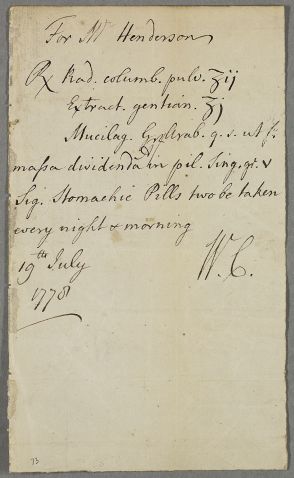 For Mr Henderson
℞ Rad. columb. pulv. ʒij
Extract. gentian. ʒj
Mucilag. G. Arab. q. s. ut f:
massa dividenda in pil. sing. gr. v
Sig. Stomachic Pills two be taken
every night & morning
19th July
1778
W. C.
73